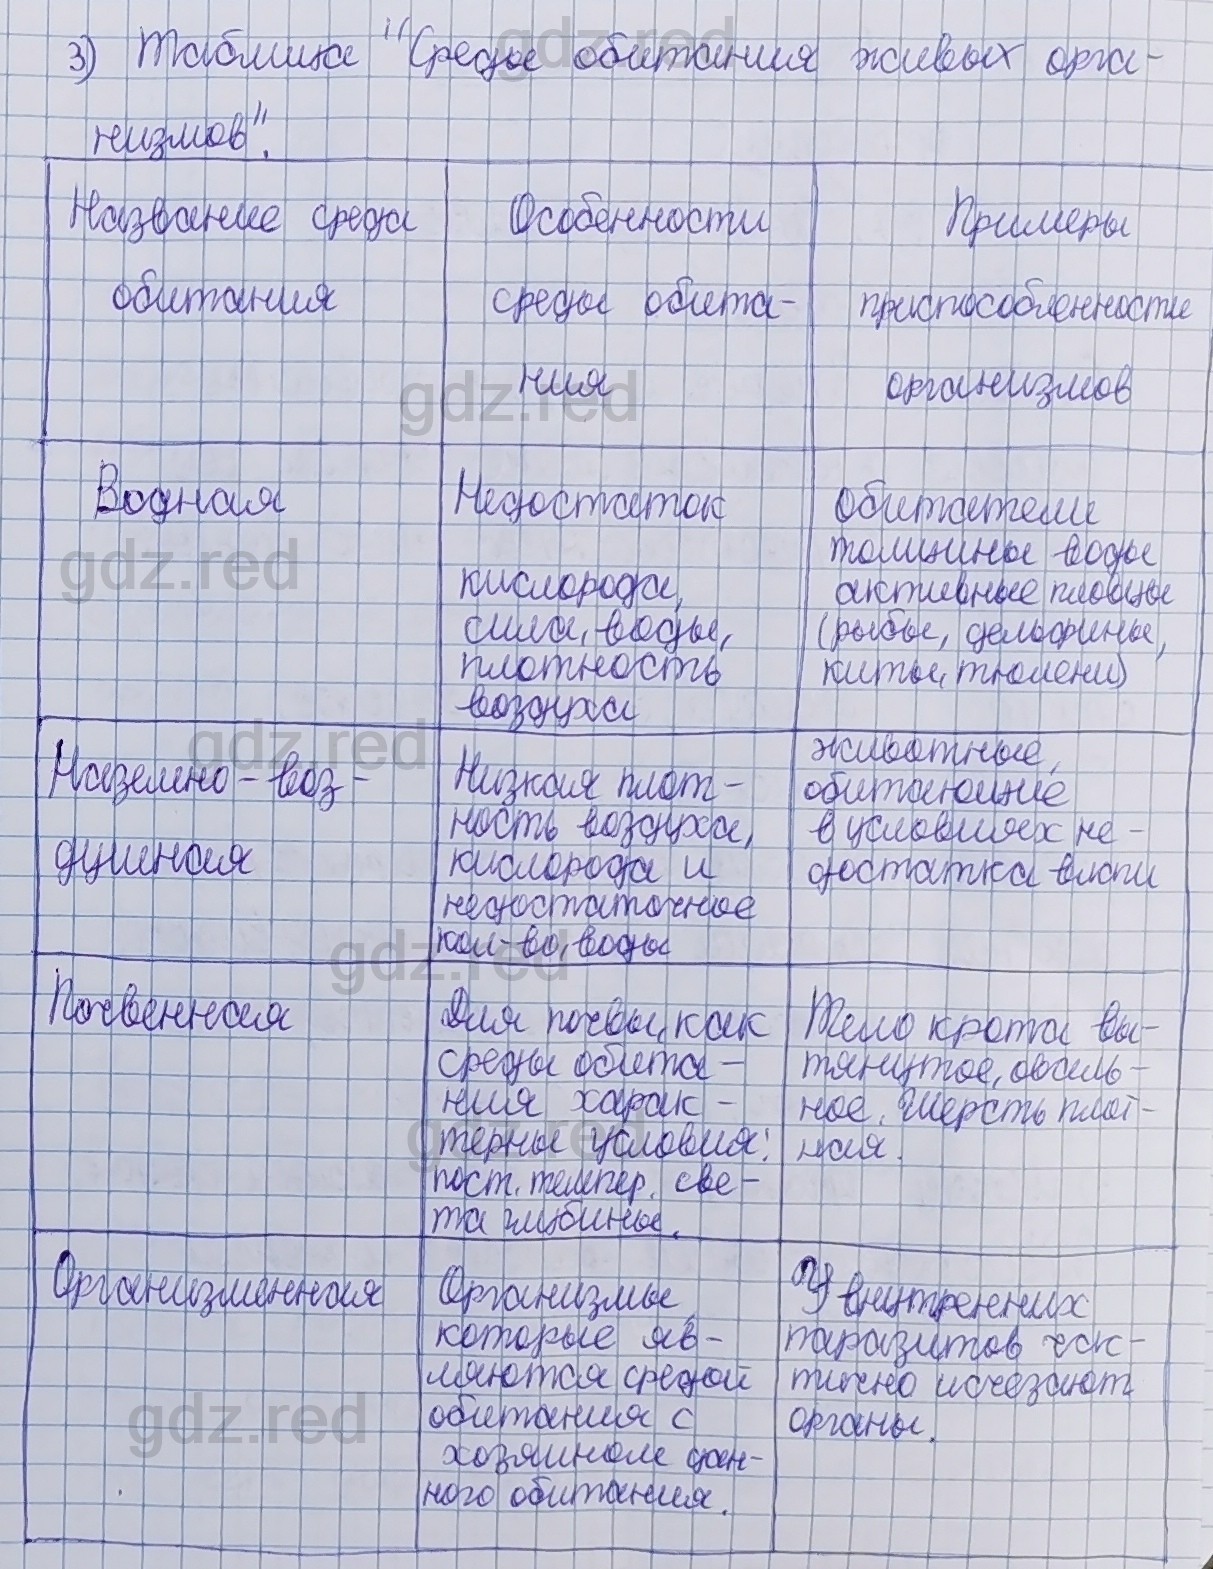 3) Таблица "Среды обитания живых орга-
низмов".
Название среда
обитания
Особенности
среды обита-
ния
Примеры
приспособленности
организмов
Водная
Недостаток
кислорода,
сила, воды,
плотность
воздуха
Обитатели
толщины воды
активные пловцы
(рыбы, дельфины,
киты, тюлени)
Наземно-воз-
душная
Низкая плот-
ность воздуха,
кислорода и
недостаточное
кол-во, воды
животные,
обитающие
в условиях не-
достатка влаги
Почвенная
Для почвы, как
среды обита-
ния харак-
терны условия:
пост. темпер. све-
та глубины.
Тело крота вы-
тянутое, оваль-
ное. Шерсть плот-
ная.
Организменная
Организмы
которые яв-
ляются средой
обитания с
хозяином дан-
ного обитания.
У внутренних
паразитов час-
тично исчезают
органы.
gdz.red
gdz.red
gdz.red
gdz.red
gdz.red
gdz.red
gdz.red